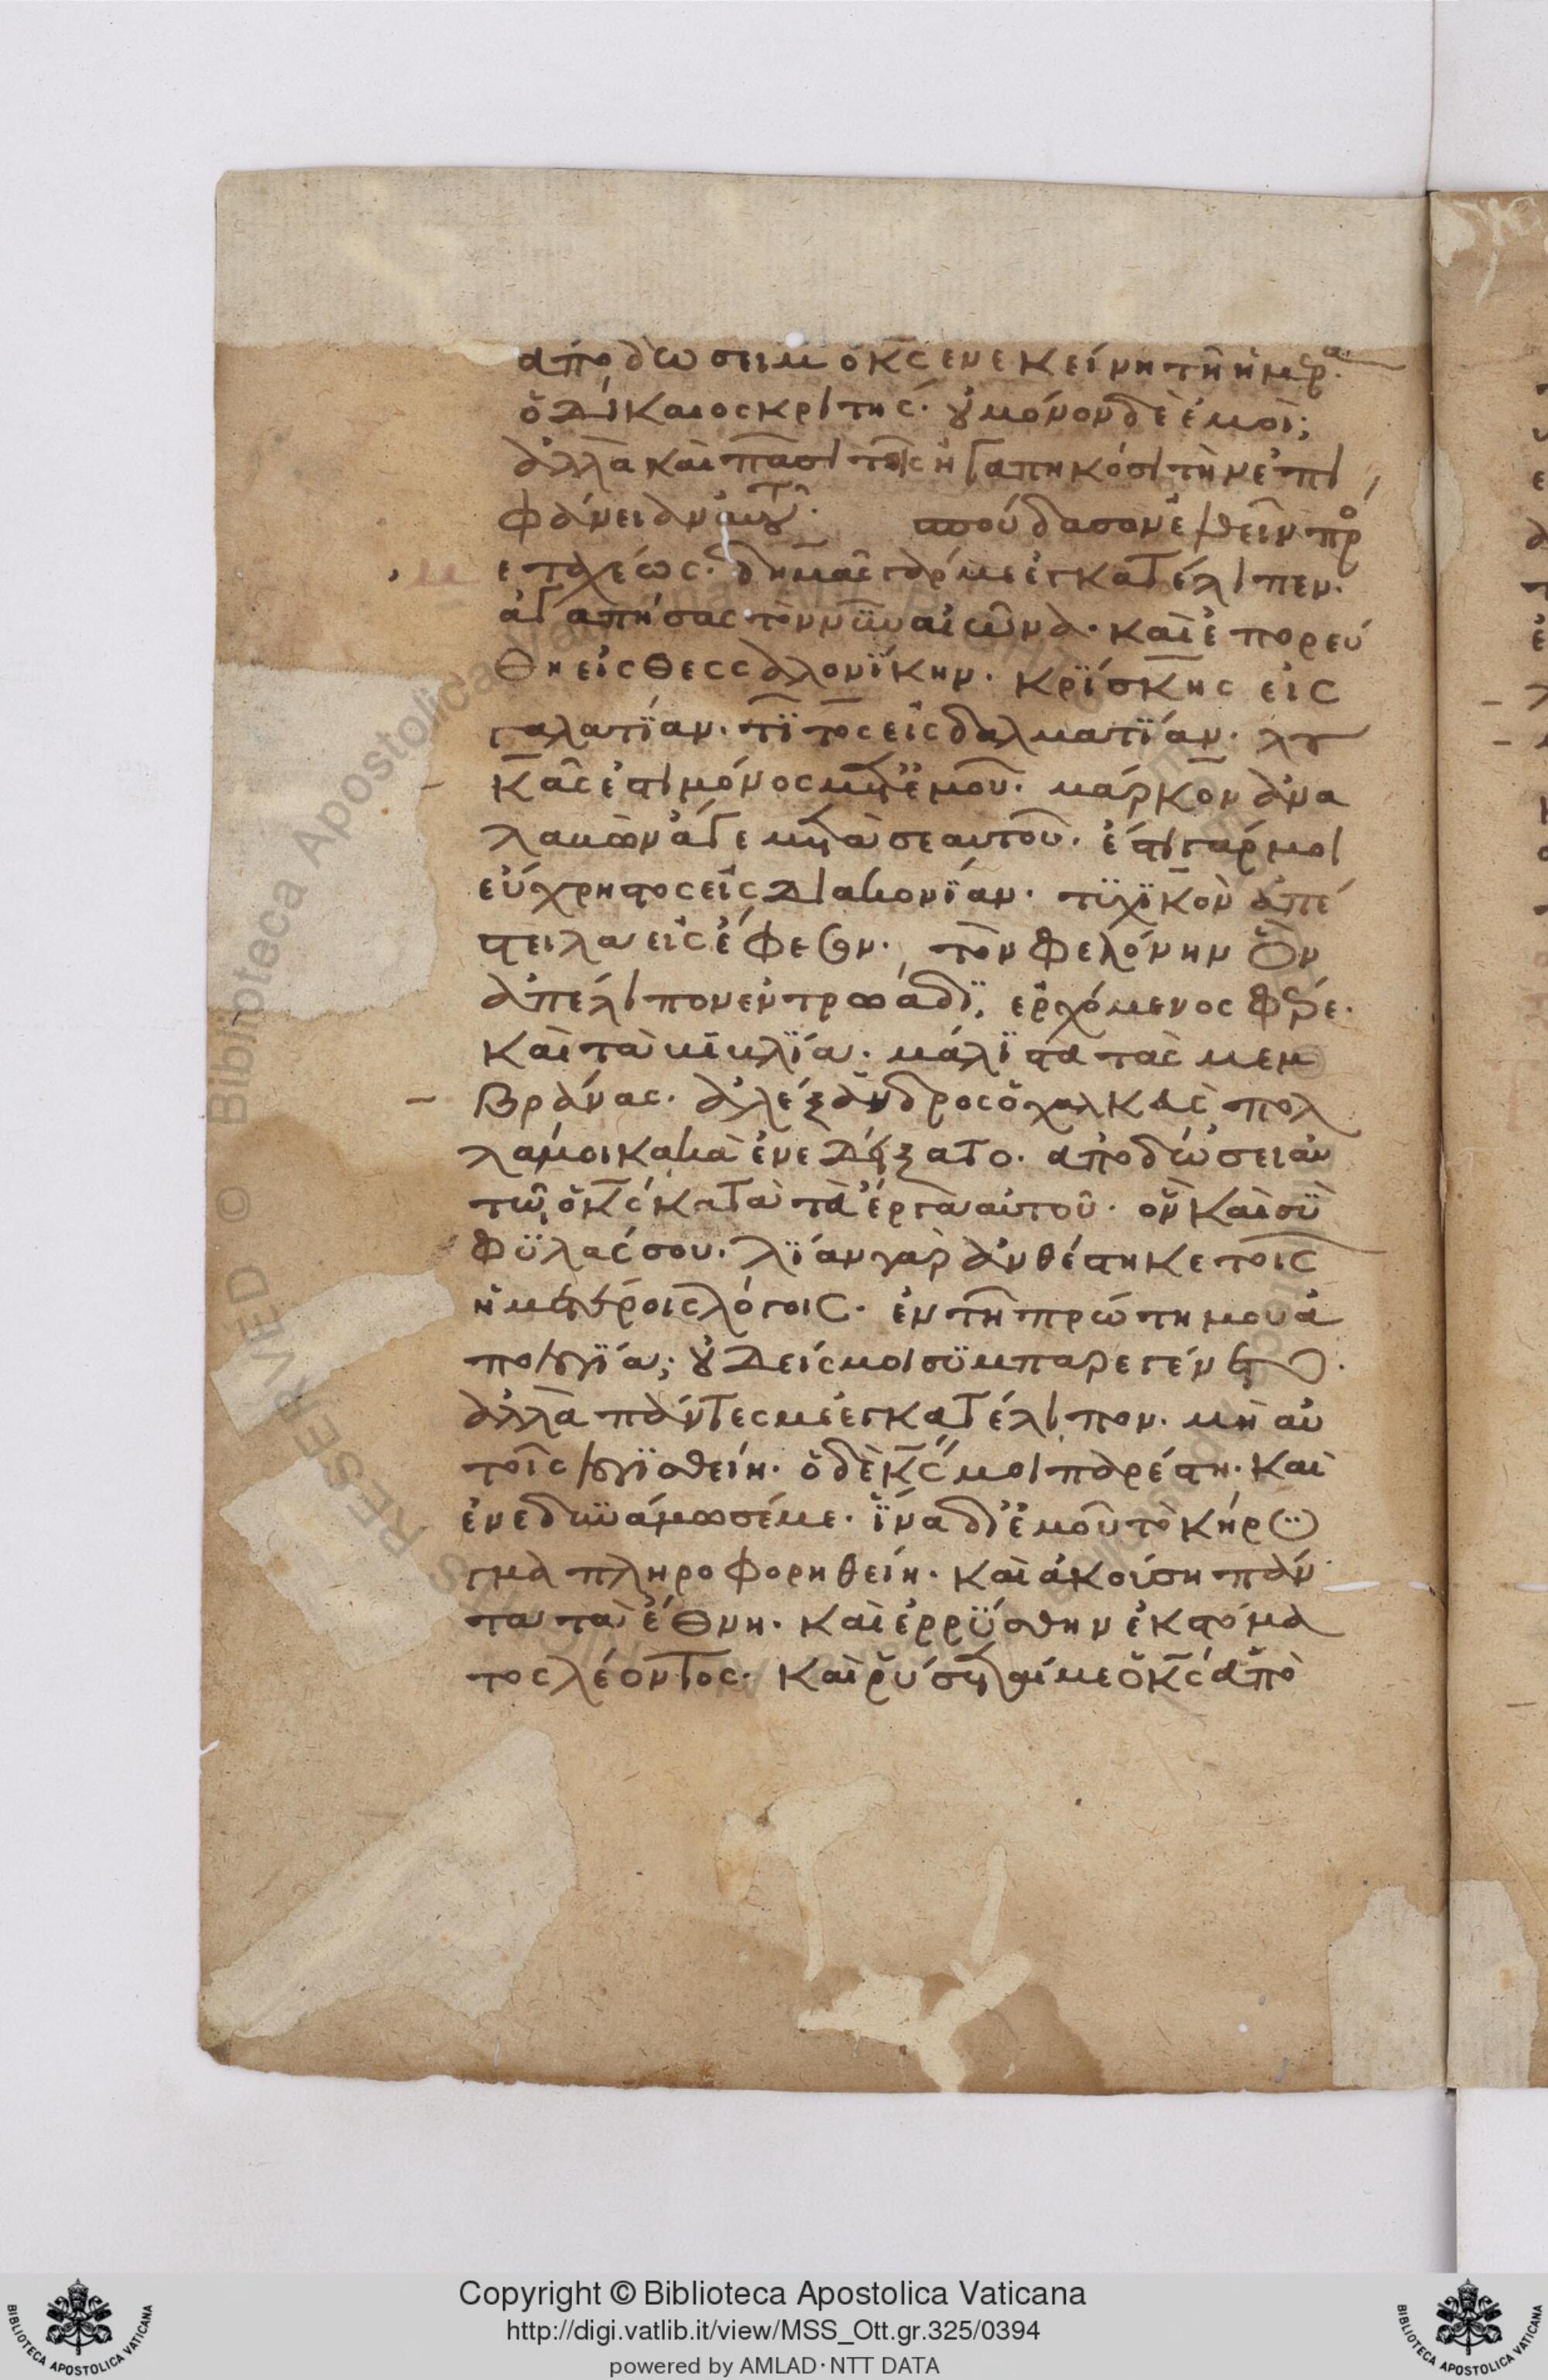 ἀποδώσει μοι ὁ κ̅ς ἐν ἐκείνη τῆ ἡμέρα·
ὁ δίκαιος κριτής· οὐ μόνον δὲ ἐμοὶ;
ἀλλὰ καὶ πᾶσι τοῖς ἠγαπηκόσι τὴν ἐπι
φάνειαν αὐτοῦ· σπούδασον ἐλθεῖν πρό
ς με ταχέως· δημᾶς γάρ με ἐγκατέλιπεν·
ἀγαπήσας τὸν νῦν αἰῶνα· καὶ ἐπορεύ
θη εἰς θεσσαλονίκην· κρΐσκης εἰς
γαλατΐαν· τΐτος εἰς δαλματΐαν· λου
κᾶς ἐστι μόνος μετ' ἐμοῦ· μάρκον ἀνα
λαβὼν ἄγε μετὰ σεαυτοῦ· ἔστι γάρ μοι
εὔχρηστος εἰς διακονΐαν· τϋχϊκὸν ἀπέ
στειλα εἰς ἔφεσον· τὸν φελόνην ὃν
ἀπέλιπον ἐν τρωάδϊ, ἐρχόμενος φέρε·
καὶ τὰ βιβλΐα· μάλϊστα τὰς μεμ
βράνας· ἀλέξανδρος ὁ χαλκεὺς πολ
λά μοι κακὰ ἐνεδείξατο· ἀποδώσει αὐ
τῶ ὁ κ̅ς κατὰ τὰ ἔργα αὐτοῦ· ὃν καὶ σϋ
φϋλάσσου· λΐαν γὰρ ἀνθέστηκε τοῖς
ἡμετέροις λόγοις· ἐν τῆ πρώτη μου ἀ
πολογΐα; οὐδείς μοι σϋμπαρεγένετο·
ἀλλὰ πάντες με ἐγκατέλιπον· μὴ αὐ
τοῖς λογϊσθείη· ὁ δὲ κ̅ς μοι παρέστη· καὶ
ἐνεδυνάμωσέ με· ἵνα δι' ἐμοῦ τὸ κήρυ
γμα πληροφορηθείη· καὶ ἀκούση πάν
τα τὰ ἔθνη· καὶ ἐρρϋσθην ἐκ στόμα
τος λέοντος· καὶ ῥύσεταί με ὁ κ̅ς ἀπὸ
Copyright © Biblioteca Apostolica Vaticana
http://digi.vatlib.it/view/MSS_Ott.gr.325/0394
powered by AMLAD·NTT DATA
BIBLIOTECA APOSTOLICA VATICANA
BIBLIOTECA APOSTOLICA VATICANA